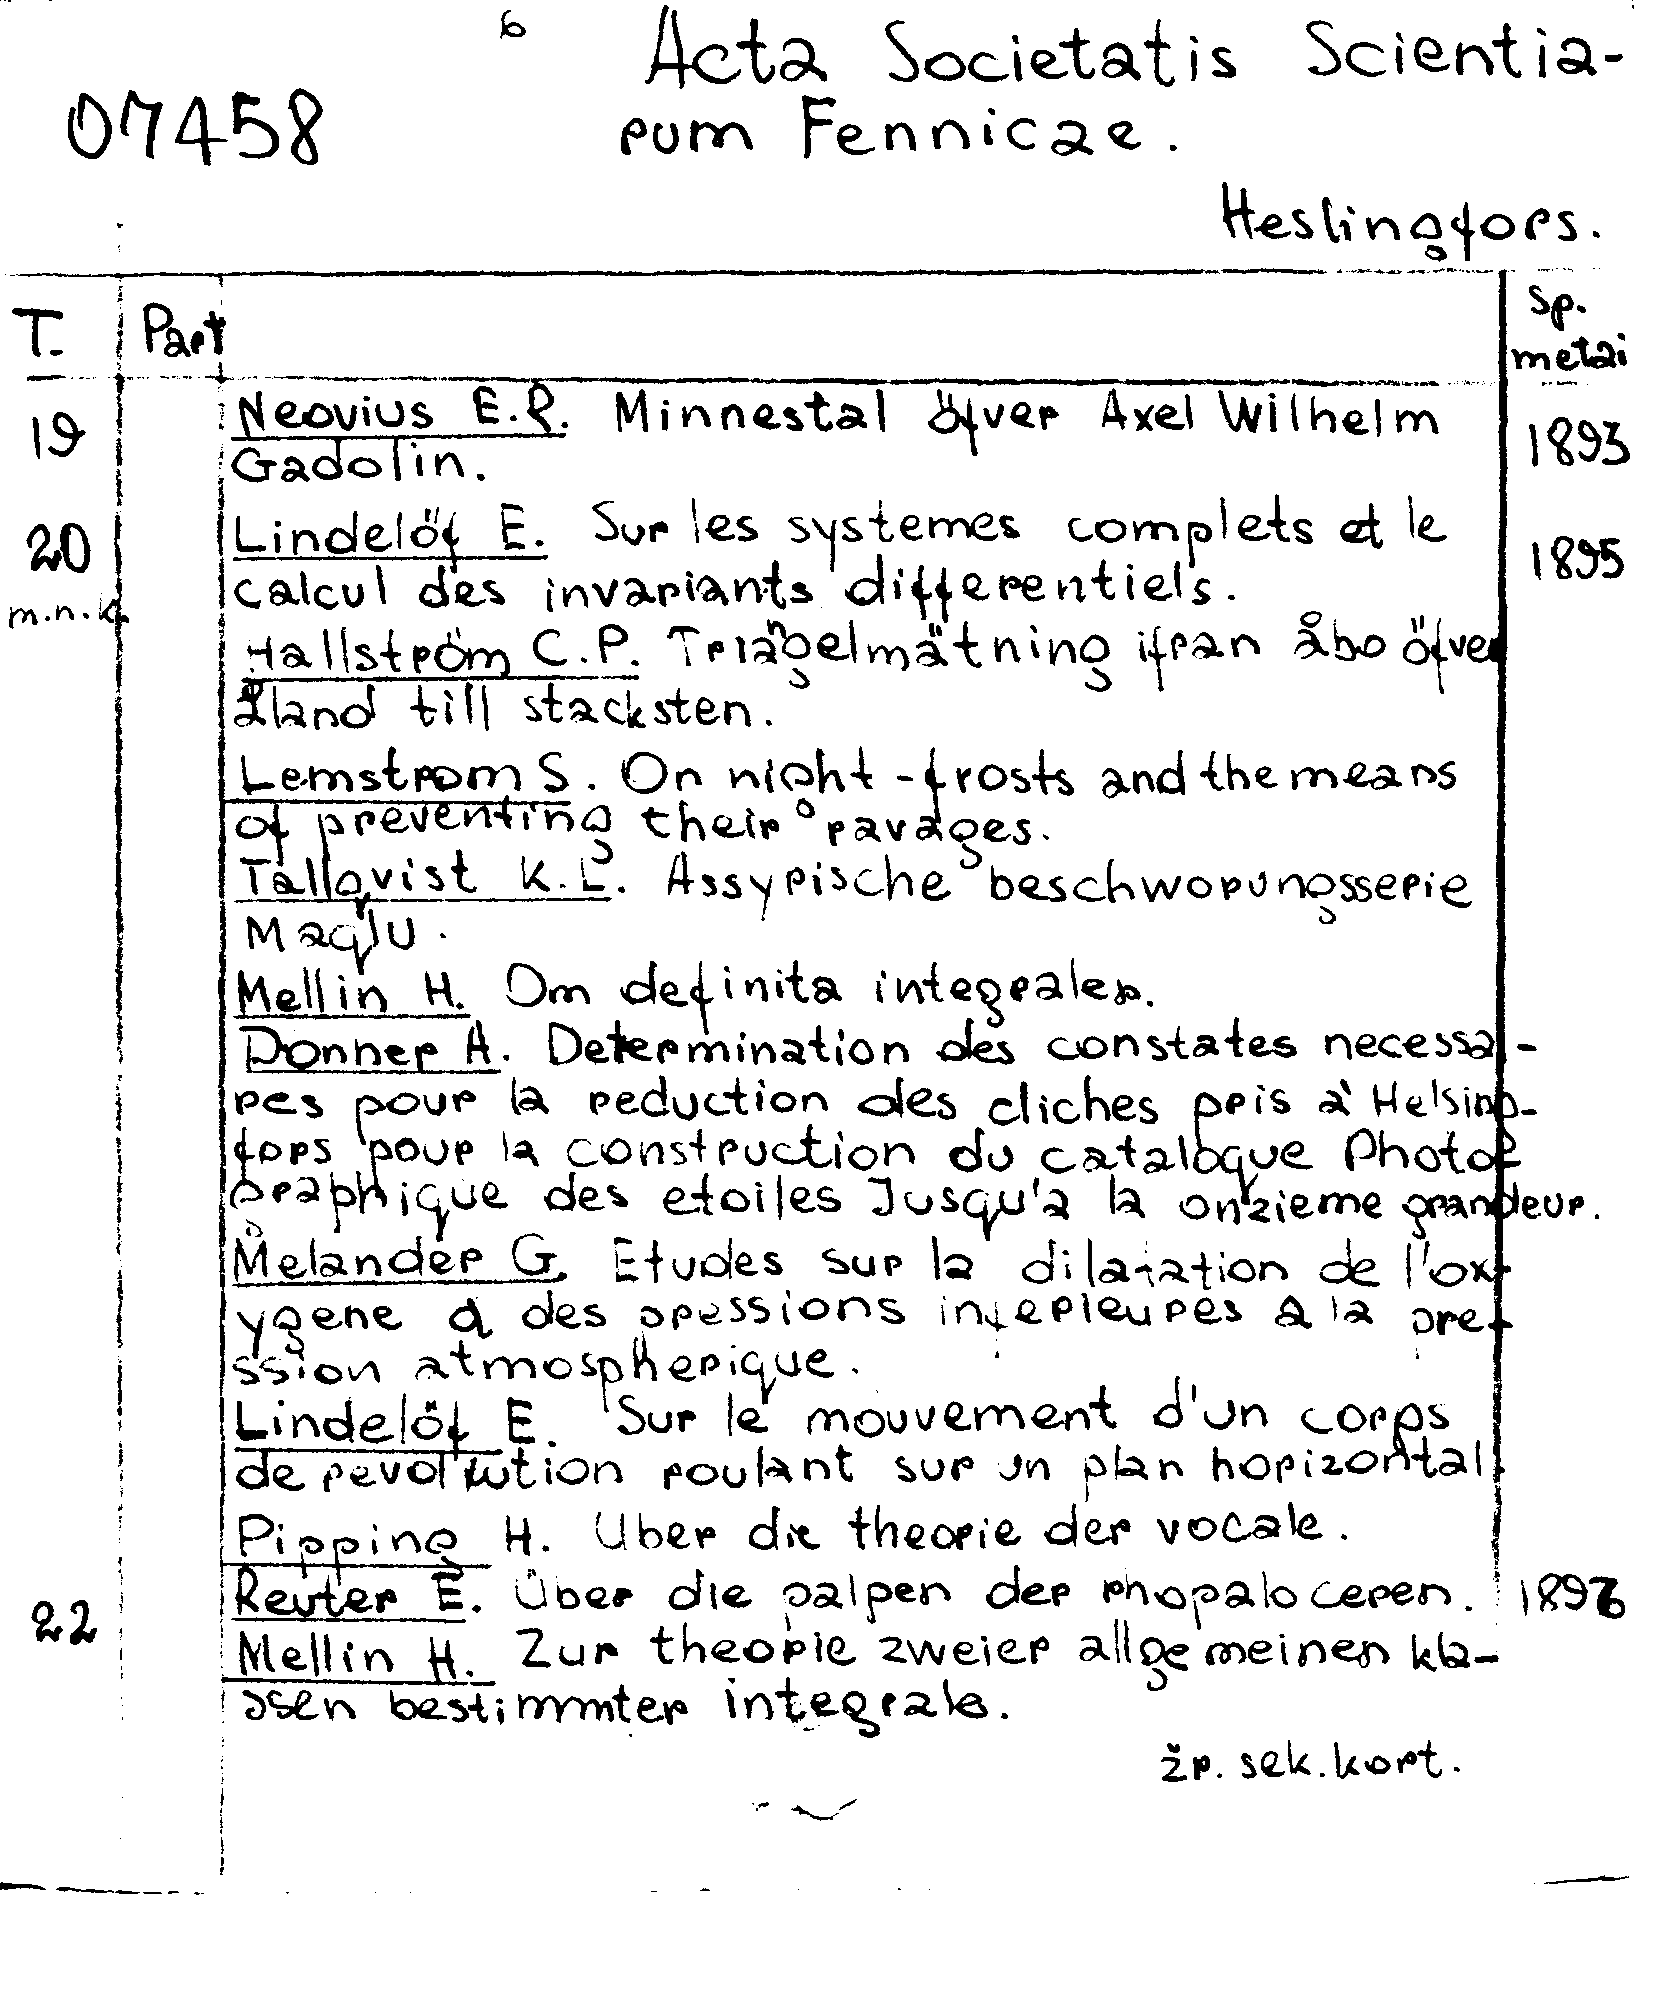 6 Acta Societatis Scientia-
07458 rum Fennicae.
Heslingfors.
T. Part Sp. metai
19 Neovius E.R. Minnestal öfver Axel Wilhelm 1893
Gadolin.
20 Lindelöf E. Sur les systemes complets et le 1895
m.n.k. calcul des invariants differentiels.
Hallström C.P. Triängelmätning ifran åbo öfver
åland till stacksten.
Lemstrom S. On night-frosts and the means
of preventing their ravages.
Tallqvist K.L. Assyrische beschworungsserie
Maqlu.
Mellin H. Om definita integraler.
Donner A. Determination des constates necessa-
res pour la reduction des cliches pris à Helsing-
fors pour la construction du catalogue Photo-
graphique des etoiles Jusqu'a la onzieme grandeur.
Melander G. Etudes sur la dilatation de l'ox-
ygene a des pressions inferieures a la pre-
ssion atmospherique.
Lindelöf E. Sur le mouvement d'un corps
de revolution roulant sur un plan horizontal.
Pipping H. Uber die theorie der vocale.
22 Reuter E. Über die palpen der rhopaloceren. 1896
Mellin H. Zur theorie zweier allgemeinen kla-
ssen bestimmter integrale.
žr. sek. kort.